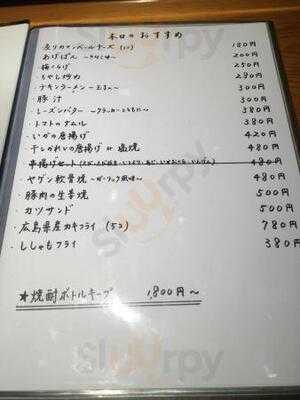 本日のおすすめ
炙りカマンベールチーズ (1コ) 180円
・あげぱん ～きなこ味～ 200円
・梅くらげ 250円
・もやし炒め 280円
・チキンラーメン ～玉子入～ 300円
・豚汁 300円
・レーズンバター ～クラッカーとともに～ 380円
・トマトのナムル 380円
・いかの唐揚げ 420円
・干しかれいの唐揚げ or 塩焼 480円
串揚げセット 480円
・ヤゲン軟骨焼 ～ガーリック風味～ 480円
・豚肉の生姜焼 500円
・カツサンド 500円
・広島県産カキフライ (5コ) 780円
・ししゃもフライ 380円
★焼酎ボトルキープ 1,800円～